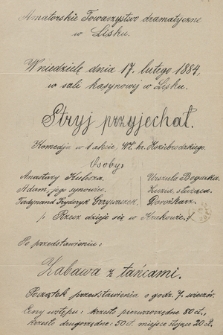 Amatorskie Towarzystwo dramatyczne
w Lisku.
W niedzielę dnia 17. lutego 1884,
w sali kasynowej w Lisku.
Stryj przyjechał.
Komedja w 1 akcie Wł. hr. Koziebrodzkiego.
Osoby:
Anastazy Kulesza, Urszula
Adam, jego synowiec, Zuzia, służąca
Ferdynand Grzymała,
Rzecz dzieje się w Krakowie.
Po przedstawieniu:
Zabawa z tańcami.
Początek przedstawienia o godz. 7. wieczór.
Ceny wstępu: krzesło pierwszorzędne 80 ct.,
krzesło drugorzędne: 50 ct. miejsce stojące 20 ct.